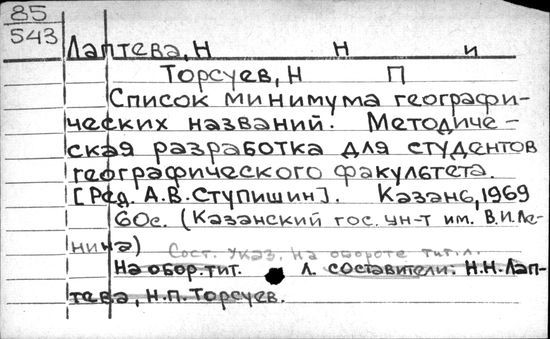 85
543
Лаптева, Н Н и
Торсуев, Н П
Список минимума географи-
ческих названий. Методиче-
ская разработка для студентов
географического факультета.
[Ред. А.В. Ступишин]. Казань, 1969
60с. (Казанский гос. ун-т им. В.И.Ле-
нина) Сост. указ. на обороте тит. л.
На обор. тит. л. составители: Н.Н. Лап-
тева, Н.П. Торсуев.